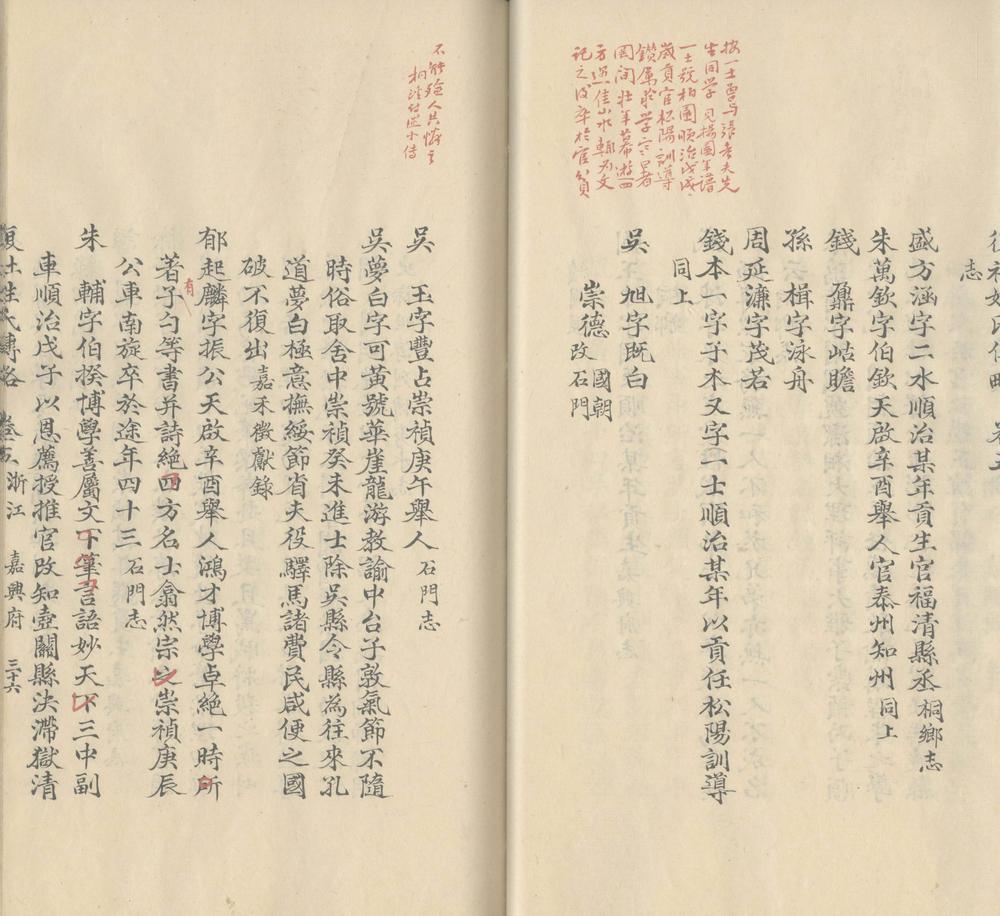 志
盛方涵字二水順治某年貢生官福清縣丞桐鄉志
朱萬欽字伯欽天啟辛酉舉人官泰州知州同上
錢鼐字岵瞻
孫楫字泳舟
周延濂字茂若
錢本一字子木又字一士順治某年以貢任松陽訓導
同上
吳旭字既白
崇德國朝改石門
按一士曾与張考夫先
生同学見楊園年譜
一士號柏園順治戊戌
歲貢官松陽訓導
鑽厲於学宗呂者
園間壮年幕游四
方遇佳山水輒為文
記之後卒於官貧
不能殮人共悔之
吳玉字豐占崇禎庚午舉人石門志
吳夢白字可黃號華崖龍游教諭中台子敦氣節不隨
時俗取舍中崇禎癸未進士除吳縣令縣為往來孔
道夢白極意撫綏節省夫役驛馬諸費民咸便之國
破不復出嘉禾徵獻錄
郁起麟字振公天啟辛酉舉人鴻才博學卓絕一時所
著有子勺等書并詩絕四方名士翕然宗之崇禎庚辰
公車南旋卒於途年四十三石門志
朱輔字伯揆博學善屬文下筆言語妙天下三中副
車順治戊子以恩薦授推官改知壺關縣決滯獄清
浙江 嘉興府 三十六